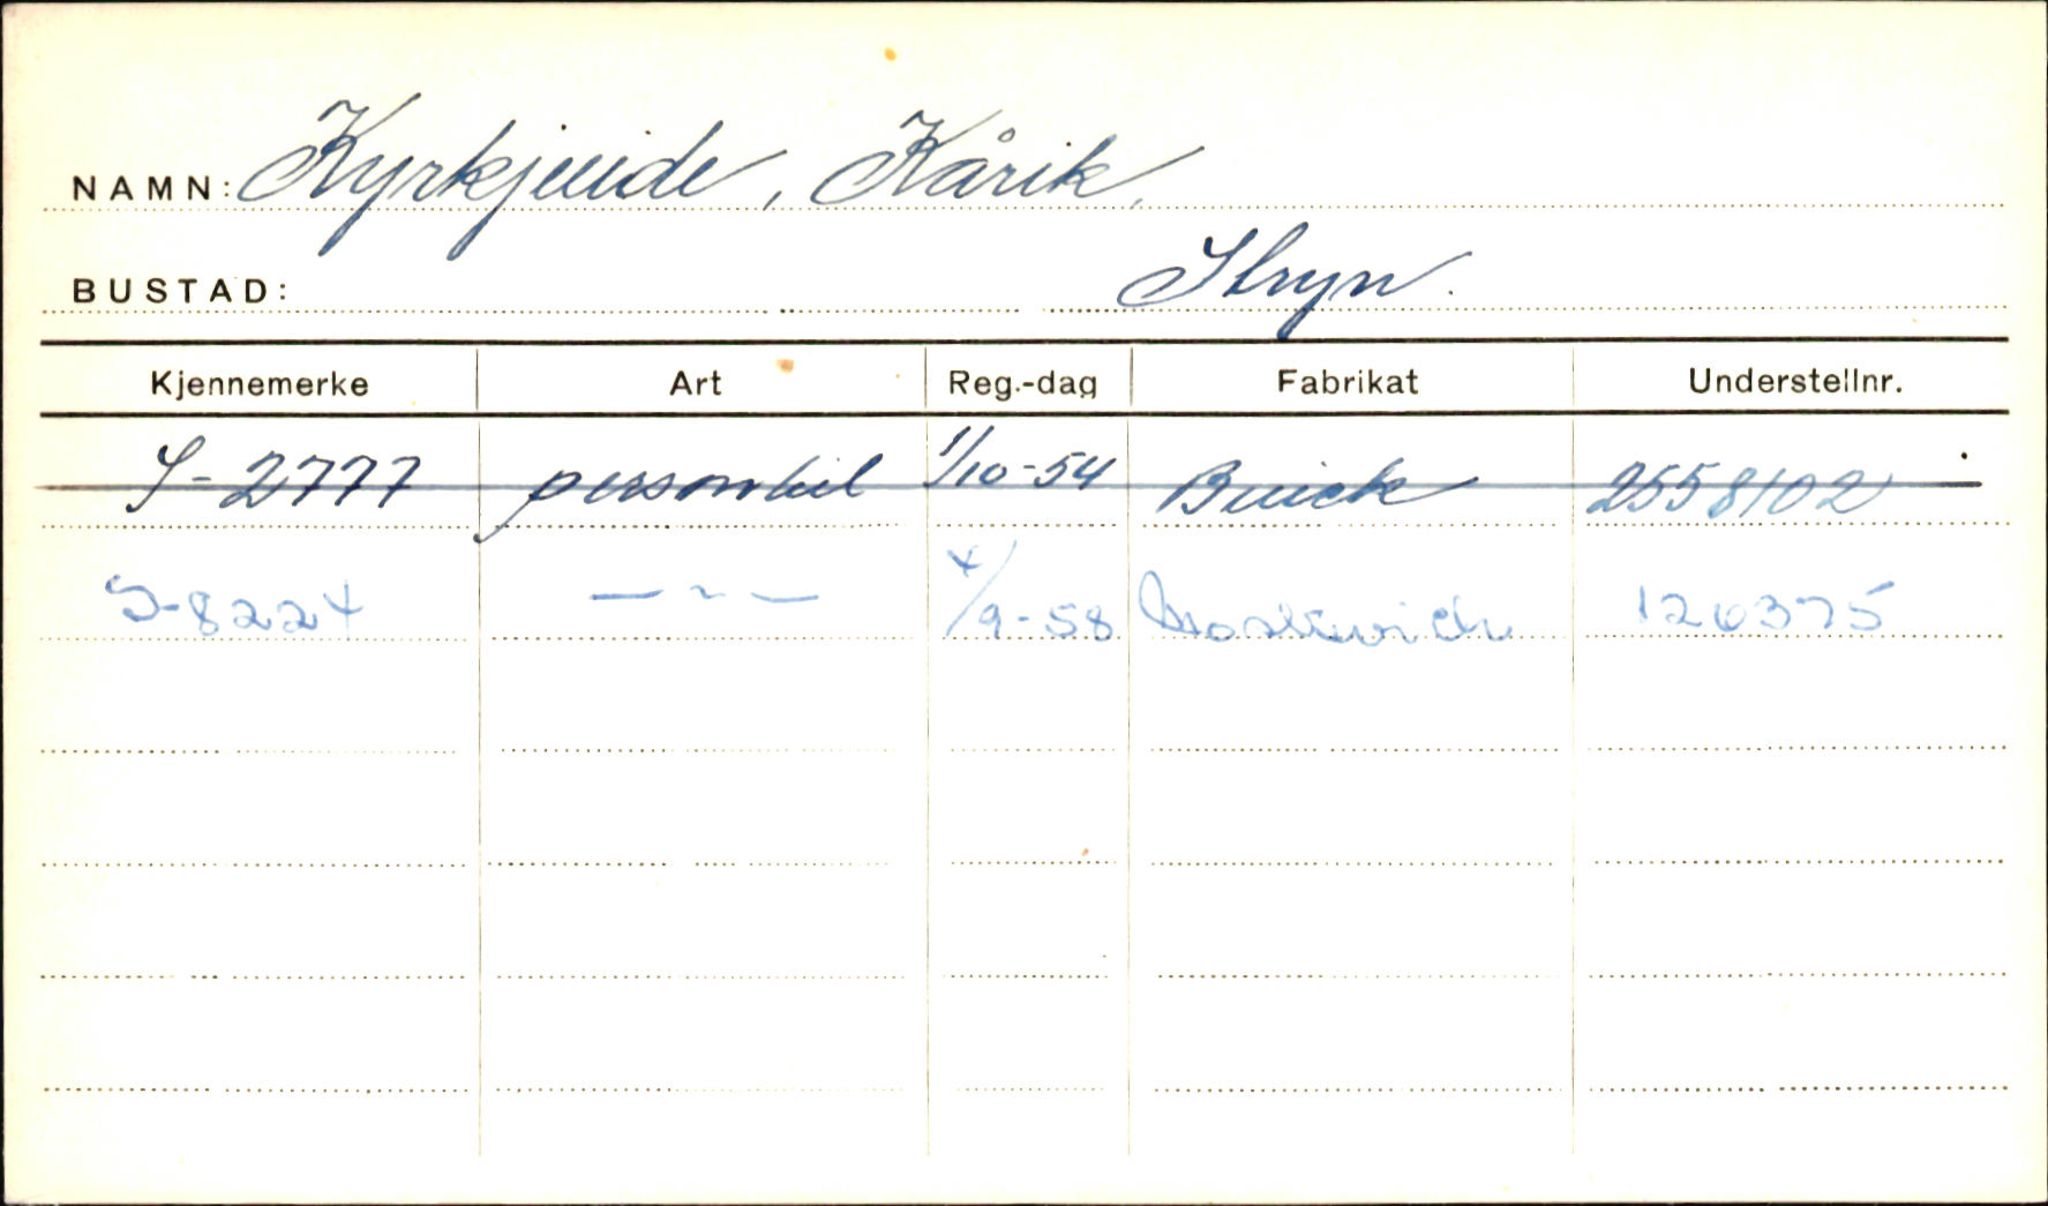 NAMN: Kyrkjeeide, Kårik,
BUSTAD: Stryn.
Kjennemerke Art Reg.-dag Fabrikat Understellnr.
S-2777 personbil 1/10-54 Buick 2558102
S-8224 — ~ — 4/9-58 Moskwich 120375